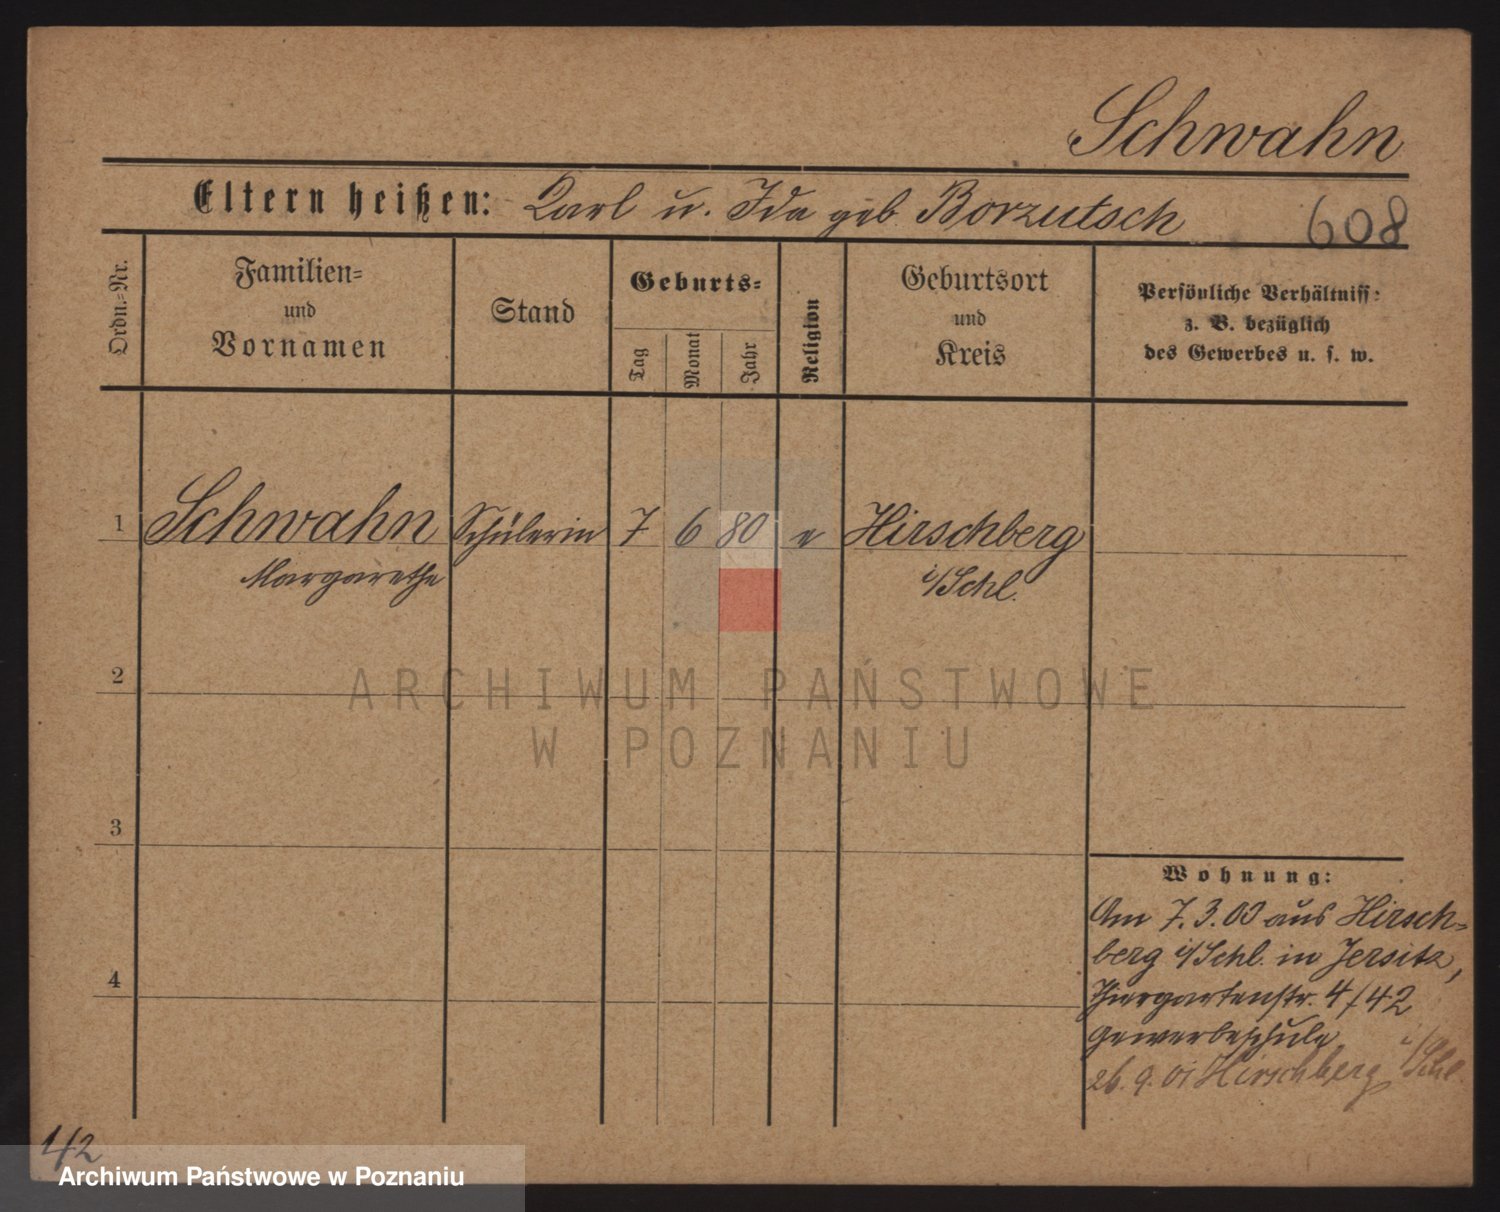 Schwahn
Eltern heißen: Carl u. Ida geb. Borzutsch
608
Ordn.-Nr.
Familien-
und
Vornamen
Stand
Geburts-
Tag
Monat
Jahr
Religion
Geburtsort
und
Kreis
Persönliche Verhältniss:
z. B. bezüglich
des Gewerbes u. s. w.
1 Schwahn Schülerin 7 6 80 e Hirschberg
Margarethe i/Schl.
2
ARCHIWUM PAŃSTWOWE
W POZNANIU
3
Wohnung:
Am 7.3.00 aus Hirsch-
berg i/Schl. in Jersitz,
4
Thiergartenstr. 4/42
Gewerbeschule
26.9.01 Hirschberg i/Schl.
Archiwum Państwowe w Poznaniu